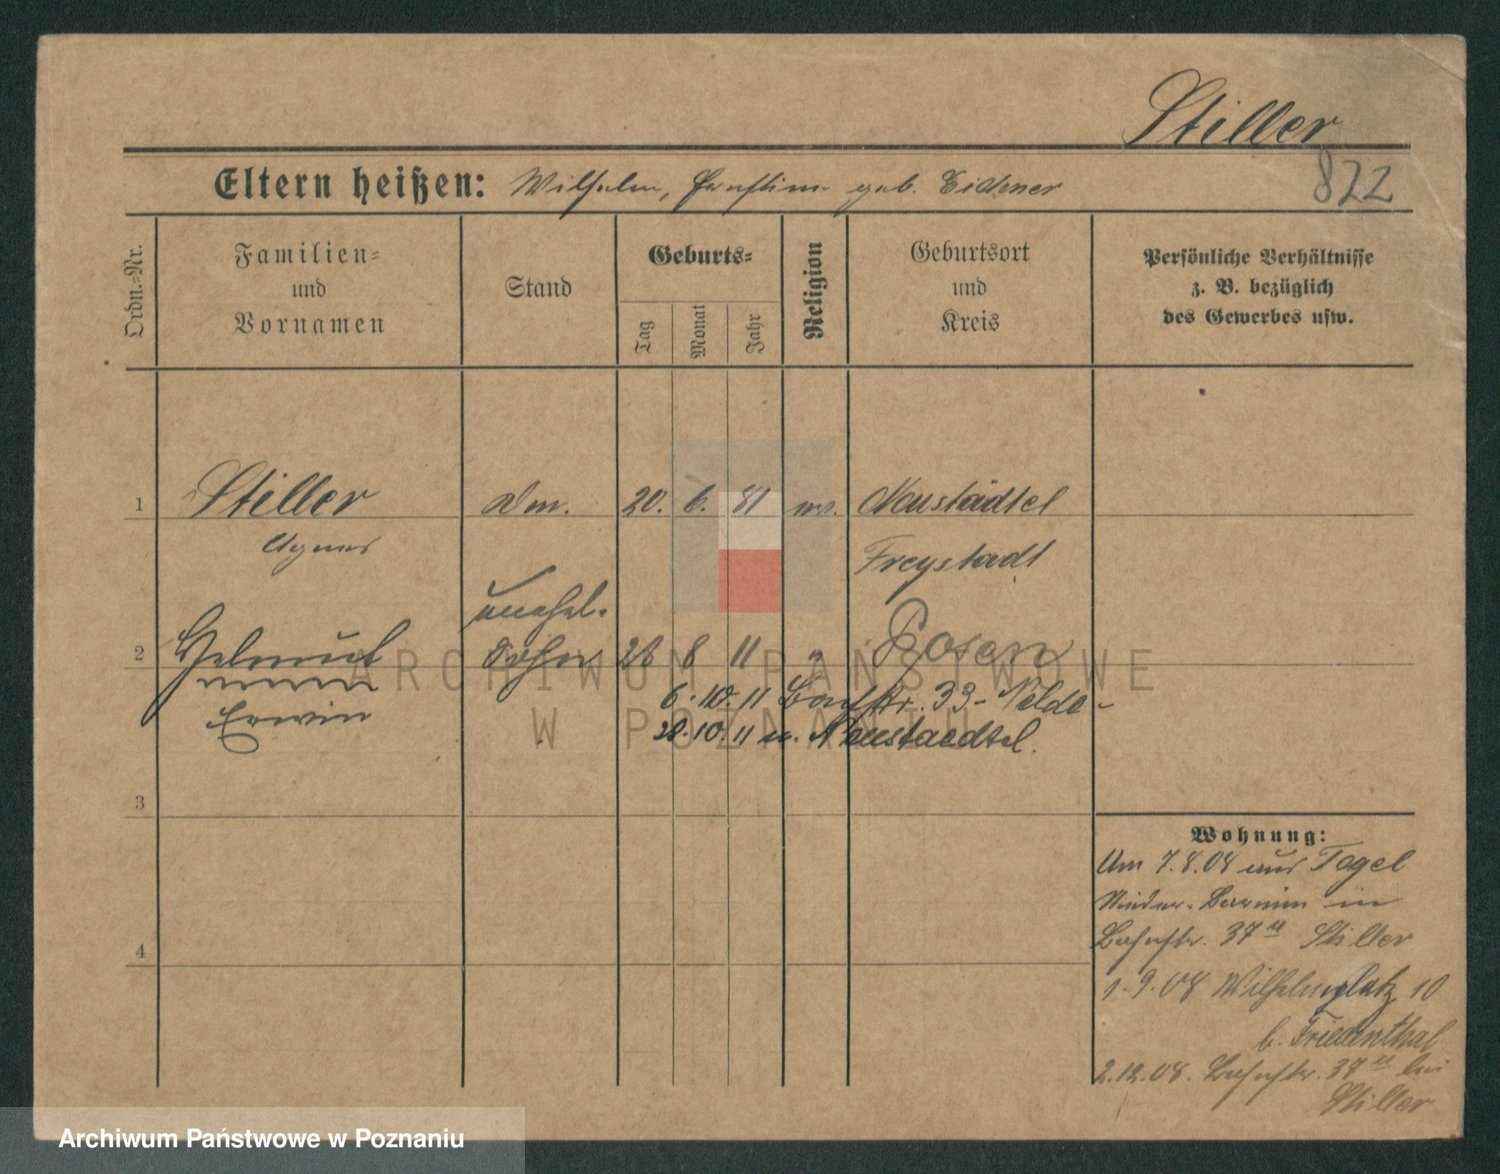 Stiller
822
Eltern heißen: Wilhelm, Ernstine geb. Eichner
Ordn.-Nr.
Familien-
und
Vornamen
Stand
Geburts-
Tag
Monat
Jahr
Religion
Geburtsort
und
Kreis
Persönliche Verhältnisse
z. B. bezüglich
des Gewerbes usw.
1 Stiller 20. 6. 81 Neustädtel
Agnes Freystadt
unehel.
2 Helmut Sohn 28 8 11 " Posen
Erwin
6. 10. 11 33
28. 10. 11 n. Neustaedtel.
3
4
Wohnung:
Um 7.8.08 aus Tegel
Nieder-Barnim in
37 II Stiller
1.9.08 Wilhelmplatz 10
b. Friedenthal
2.12.08. 37 II bei
Stiller
ARCHIWUM PAŃSTWOWE
W POZNANIU
Archiwum Państwowe w Poznaniu